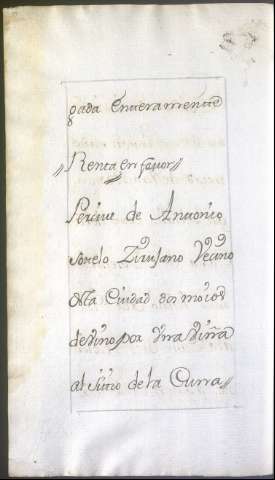 gada enteramente
//Renta en favor//
Percive de Antonio
Sotelo Zirujano Vecino
desta Ciudad dos moios
de vino por una viña
al sitio de la Curra//